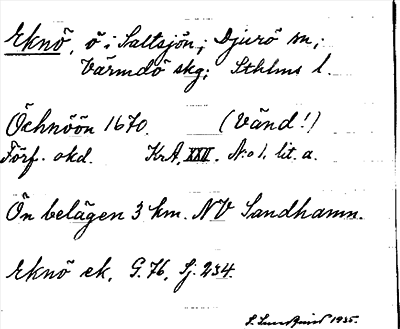 Eknö, ö i Saltsjön; Djurö sn;
Värmdö skg; Sthlms l.
Öchnöön 1670. (Vänd!)
Förf. okd. KrA, XXV. N:o 1. lit. a.
Ön belägen 3 km. NV Sandhamn.
Eknö ek. G. 76, Sj. 234.
1935.